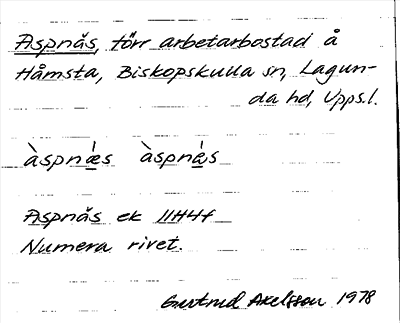 Aspnäs, förr arbetarbostad å
Håmsta, Biskopskulla sn, Lagun-
da hd, Upps.l.
àspnæ̀s àspnä̀s
Aspnäs ek 11H4f
Numera rivet.
Gertrud Axelsson 1978